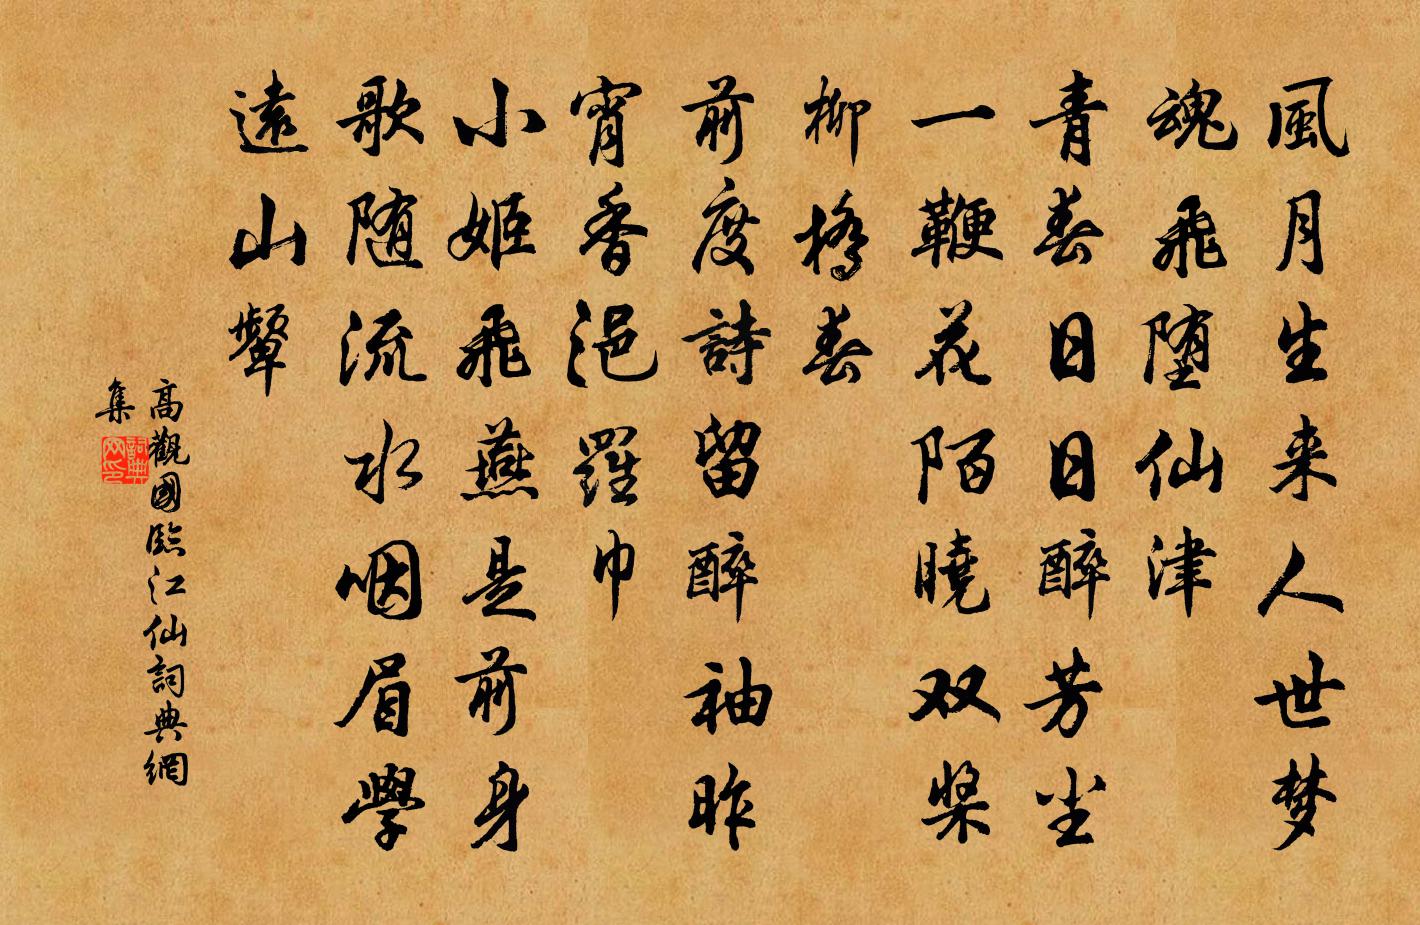 風月生来人世梦
魂飛堕仙津
青春日日醉芳尘
一鞭花陌曉双桨
柳橋春
前度詩留醉袖昨
宵香浥羅巾
小姬飛燕是前身
歌随流水咽眉學
遠山顰
高觀國臨江仙詞典網
集
詞典網印